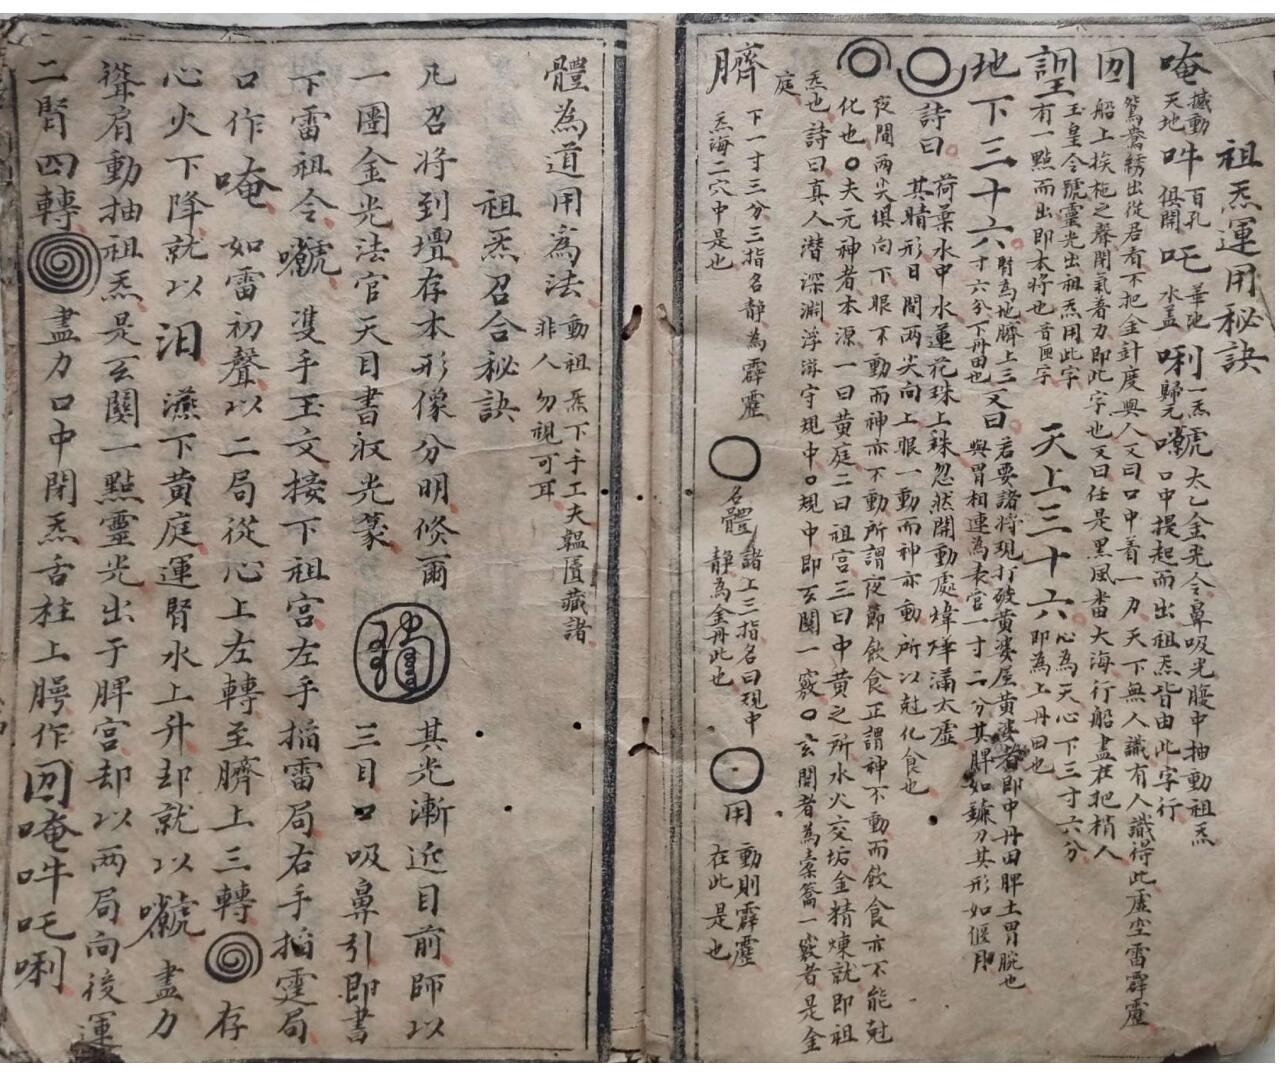 祖炁運用秘訣
唵 撼動天地 吽 百孔俱開 吒 華池水盖 唎 一炁歸元 㘕 太乙金光令鼻吸光腹中抽動祖炁口中提起而出祖炁皆由此字行
囙 鴛鴦綉出從君看不把金針度與人又曰口中着一力天下無人識有人識得此虛空雷霹靂船上挨拖之聲閉氣着力即此字也又曰任是黑風番大海行船盡在把梢人
玉皇令號靈光出祖炁用此字有一點而出即本將也音匣字
天上三十六 心為天心下三寸六分即為上丹田也
地下三十六 腎為地臍上三寸六分下丹田也
又曰 君要諸將現打破黄婆屋黄婆者即中丹田脾土胃脘也與胃相連為表官一寸二分其脾如鐮刀其形如偃月
詩曰 荷葉水中水蓮花珠上珠忽然開動處煒燁滿太虛
其晴形日間兩尖向上眼一動而神亦動所以尅化食也
夜間兩尖填向下眼不動而神亦不動所謂夜節飲食正謂神不動而飲食亦不能尅
化也〇夫元神者本源一曰黄庭二曰祖宫三曰中黄之所水火交垢金精煉就即祖
炁也詩曰真人潜深淵浮游守規中〇規中即玄關一竅〇玄関者為橐籥一竅者是金
庭
臍 下一寸三分三指名静為霹靂炁海二穴中是也 〇 名體 諸上三指名曰規中静為金丹此也 用 動則霹靂在此是也
體為道用為法 動祖炁下手工夫韞匵藏諸非人勿視可耳
祖炁召合秘訣
凡召將到壇存本形像分明倐爾 其光漸近目前師以
一圈金光法官天目書收光篆 三目口吸鼻引即書
下雷祖令 㘕 雙手玉文接下祖宫左手掐雷局右手掐霆局
口作唵如雷初聲以二局從心上左轉至臍上三轉 存
心火下降就以汨 下黄庭運腎水上升却就以㘕 盡力
聳肩動抽祖炁是玄關一點靈光出于脾宫却以两局向後運
二腎四轉 盡力口中閉炁舌柱上腭作囙唵吽吒唎